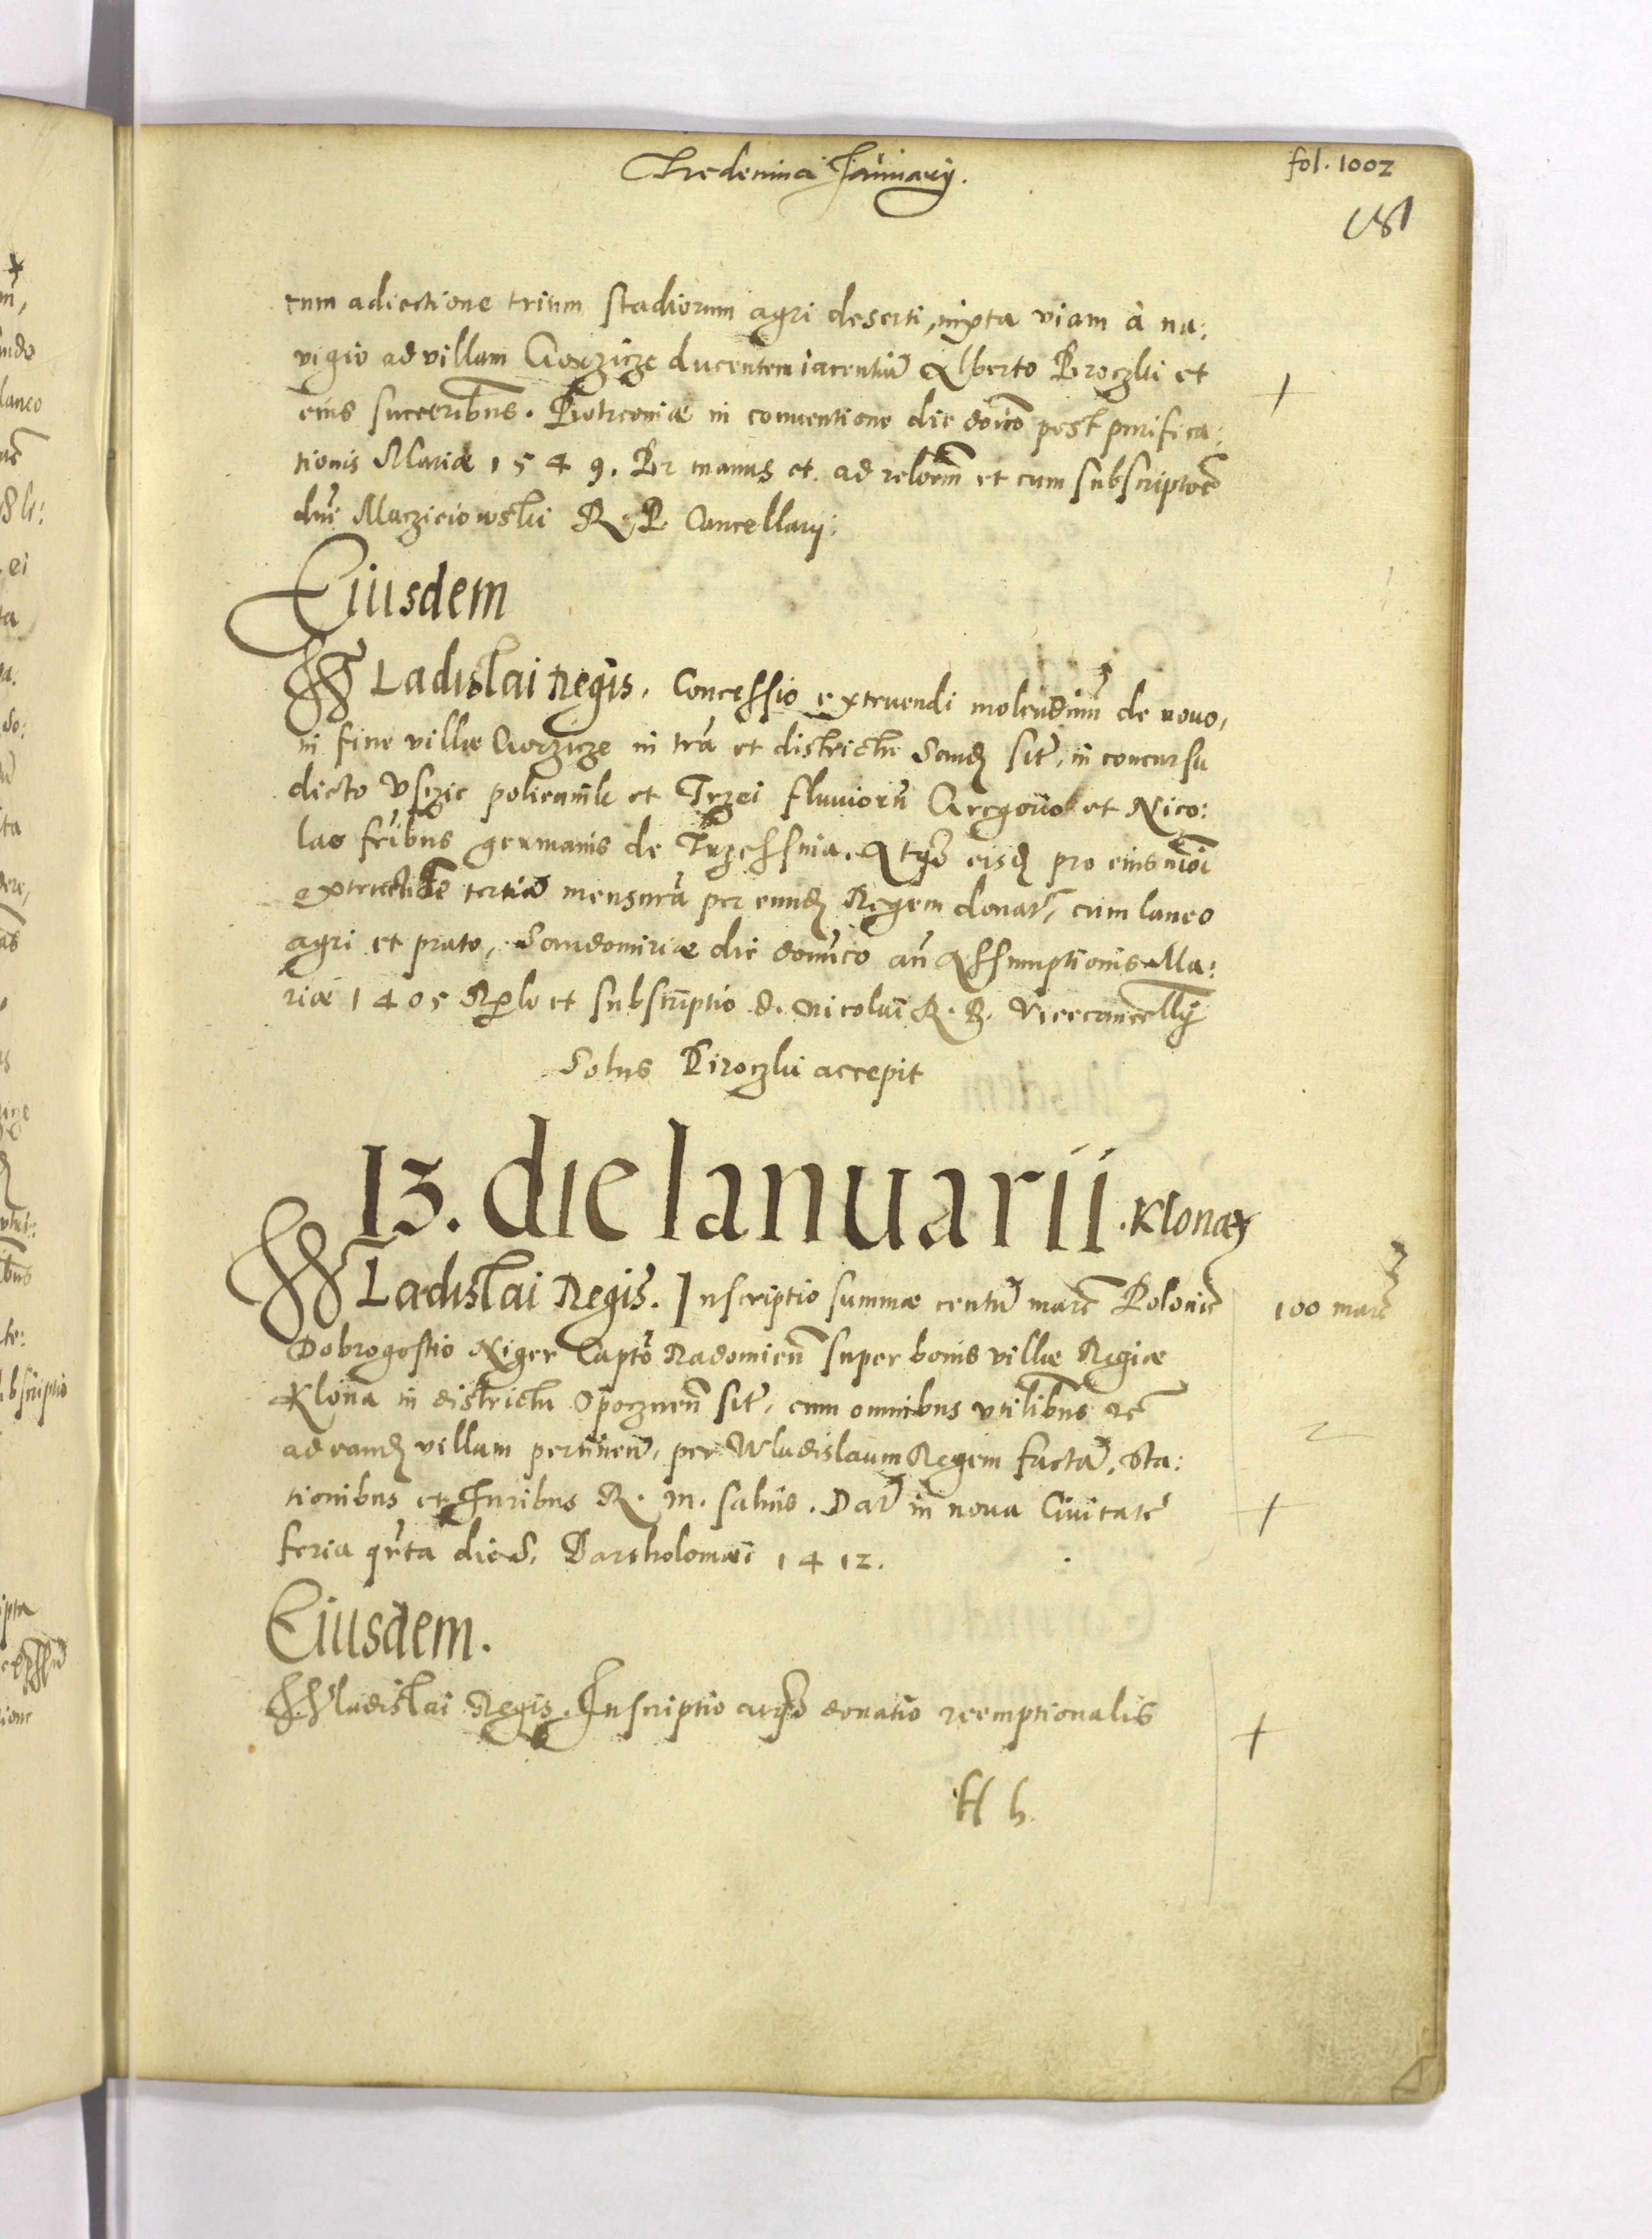 Tredecima January.
fol. 1002
181
cum adiectione trium stadiorum agri deserti, iuxta viam à na:
vigio ad villam Gorzicze ducentem iacentiũ Alberto Broczki et
eius succeribus. Piotrconiæ in conuentione die domco post purifica:
tionis Mariæ 1549. Per manus et ad reloem et cum subscriptoe
dni Macziciowski R. P. Cancellarij:
Eiusdem
WLadislai Regis. Concessio extruendi molendinũ de nouo,
in fine villæ Gorzicze in tra et districtu Sand sit, in concursu
dicto Vsczie et Trzei fluuiorũ Gregorio et Nico:
lao fribus germanis de Trzessnia. Atqz eisd pro eius
extructioe tertiã mensurã per eund Regem donat, cum laneo
agri et prato, Sandomiriæ die domĩco añ Assumptionis Ma:
riæ 1405 et subscriptio d. Nicolai R. P. Vicecancellij
Solus Piroczki accepit
13. die Ianuarii. Klona
WLadislai Regis. Inscriptio summæ centũ marc Polonic
100 marc
Dobrogostio Niger Capto Radomieñ super bonis villæ Regiæ
Klona in districtu Opoczneñ sit, cum omnibus vtilibus etc
ad eand villam pertineñ, per Wladislaum Regem factã, Sta:
tionibus et Iuribus R. M. saluis. Dat in noua Ciuitate
feria qrta die S. Bartholomæi 1412.
Eiusdem.
Wladislai Regis. Inscriptio atqz donatio reemptionalis
H h.